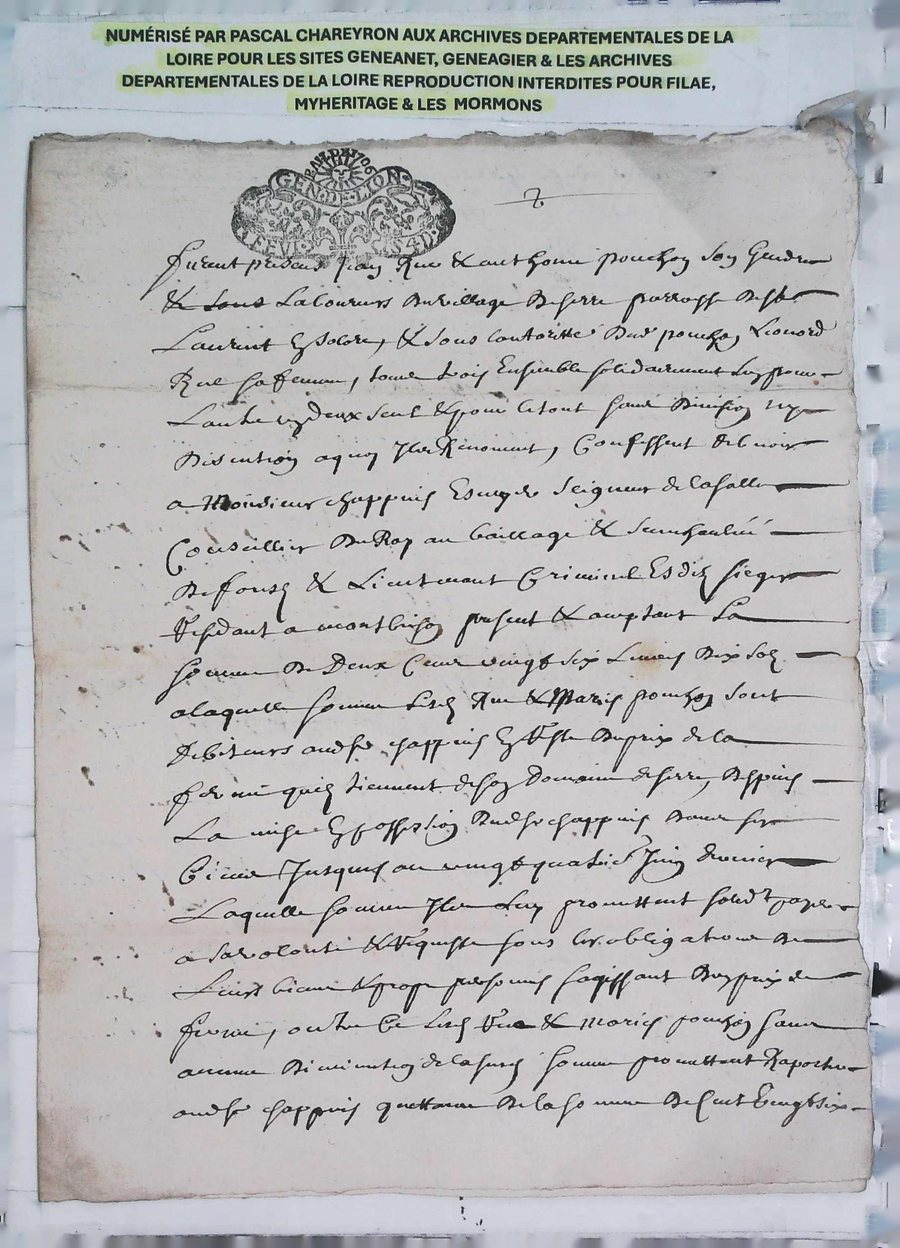 NUMÉRISÉ PAR PASCAL CHAREYRON AUX ARCHIVES DEPARTEMENTALES DE LA
LOIRE POUR LES SITES GENEANET, GENEAGIER & LES ARCHIVES
DEPARTEMENTALES DE LA LOIRE REPRODUCTION INTERDITES POUR FILAE,
MYHERITAGE & LES MORMONS
GEN DE LION
furent presens Jean Rue & anthoine ponchon son gendre
& laboureurs du village de serre parroisse de st
Laurent & sous lautoritte dud ponchon Leonord
Rue sa femme, tous trois Ensemble solidairement Lun pour
Lautre & un deux seul & pour letout sans division ny
discution aquoy Ils Renoncent, Confessent debvoir
a Monsieur chappuis Escuyer Seigneur de la salle
Conseillier du Roy au bailliage & senechaussée
de forest & Lieutenant Criminel Esdits sieges
Residant a montbrison present & acceptant La
somme de Deux Cens vingt six Livres dix sols
alaquelle somme Lesd Rue & Maries ponchon sont
debiteurs audsr chappuis de Reste du prix de la
ferme quils tiennent de son Domaine de serre, despuis
La mise En possession dudsr chappuis dans ses
biens Jusques au vingt quatrie Juin dernier
Laquelle somme Ils Luy promettent solidt payer
a sa volonté & Requeste sous les obligations de
Leurs biens & propres personnes sagissant du prix de
ferme, outre Ce Lesd Rue & Maries ponchon sans
aucune diminution de la susd somme promettent Raporter
audsr chappuis quittance de la somme de Cent vingt six